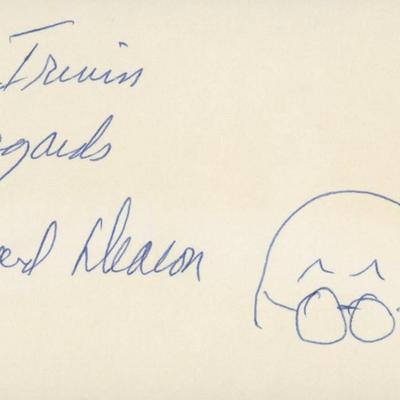 Irwin
gards
ard Deacon